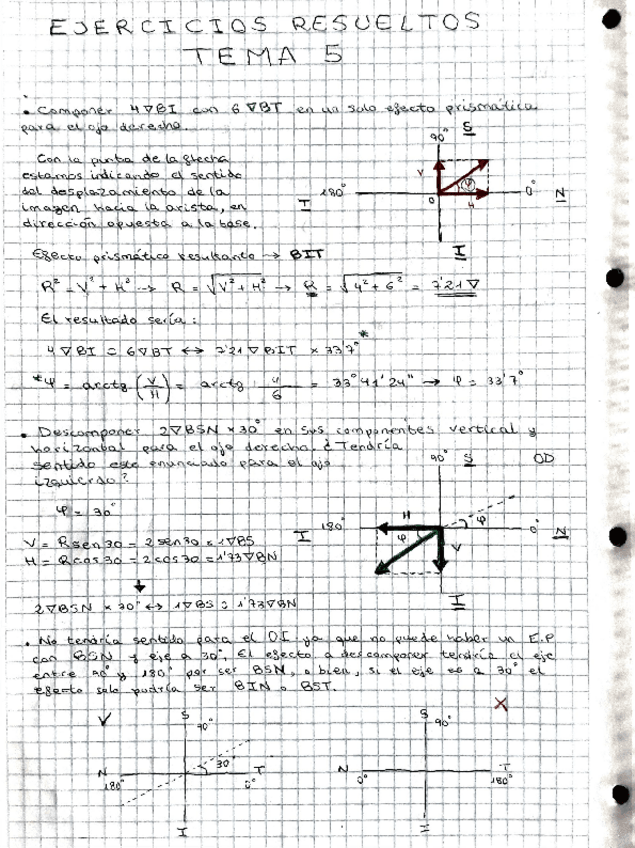 EJERCICIOS RESUELTOS
TEMA 5
• Componer 4∇BI con 6∇BT en un solo efecto prismático
para el ojo derecho.
Con la punta de la flecha
estamos indicando el sentido
del desplazamiento de la
imagen hacia la arista, en
dirección opuesta a la base.
90° S
V
φ
180° 0 H 0° N
I
I
Efecto prismático resultante → BIT
R² = V² + H² → R = √V² + H² → R = √4² + 6² = 7'21∇
El resultado sería:
4∇BI = 6∇BT ↔ 7'21∇BIT × 33'7°*
*φ = arctg (V/H) = arctg 4/6 = 33°41'24" → φ = 33'7°
• Descomponer 2∇BSN × 30° en sus componentes vertical y
horizontal para el ojo derecho. ¿Tendría
sentido este enunciado para el ojo
izquierdo?
90° S OD
φ = 30°
H φ
I 180° 0° N
φ V
I
V = R sen 30 = 2 sen 30 = 1∇BS
H = R cos 30 = 2 cos 30 = 1'73∇BN
2∇BSN × 30° ↔ 1∇BS = 1'73∇BN
• No tendría sentido para el OI ya que no puede haber un E.P
con BSN y eje a 30°. El efecto a descomponer tendría el eje
entre 90° y 180° por ser BSN, o bien, si el eje es a 30° el
efecto solo podría ser BIN o BST.
V S 90°
N 180° 30° T 0°
I
X
S 90°
N 0° T 180°
I